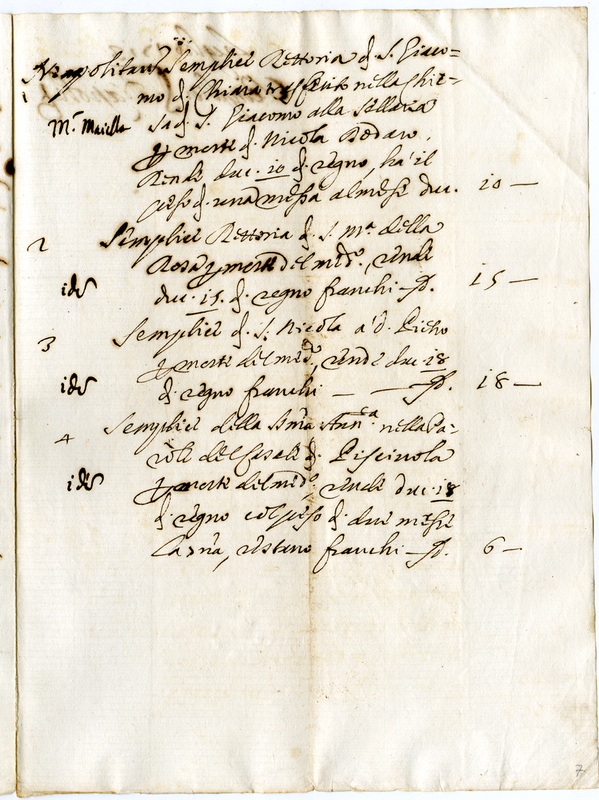 Napolitana Semplice Rettoria di S. Giaco=
1 mo di Chiara trasferito nella Chie=
M.r Maiella sa di S. Giacomo alla Sellaria
p morte di Nicola
Rende duc. 10 di regno, ha' il
peso di una messa al mese duc. 10 —
2 Semplice Rettoria di S. M.a della
Rosa p morte del med.o, rende
id. duc. 15. di regno franchi — d. 15 —
3 Semplice di S. Nicola a' d. Pietro
p morte del med.o, rende duc. 18
id. di regno franchi — — d. 18 —
4 Semplice della S.ma Ann.ta nella Pa=
role del Casale di Piscinola
id. p morte del med.o, rende duc. 18
di regno col peso di due messe
la sn̄a, restano franchi — d. 6 —
7